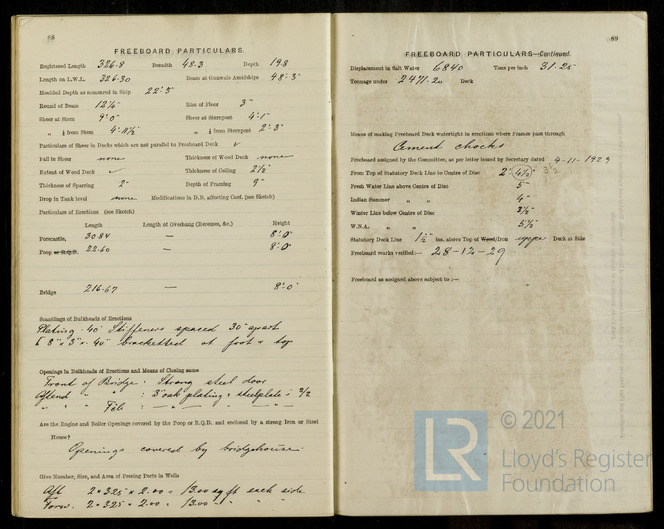 88
FREEBOARD PARTICULARS.
Registered Length 326.8 Breadth 48.3 Depth 19.8
Length on L.W.L. 326.30 Beam at Gunwale Amidships 48'.3"
Moulded Depth as measured in Ship 22'.5"
Round of Beam 12¼" Rise of Floor 3"
Sheer at Stem 9'.0" Sheer at Sternpost 4'.1"
" ¼ from Stem 4'.11½" " ¼ from Sternpost 2'.3"
Particulars of Sheer in Decks which are not parallel to Freeboard Deck ✓
Fall in Sheer none Thickness of Wood Deck none
Extent of Wood Deck ✓ Thickness of Ceiling 2½"
Thickness of Sparring 2" Depth of Framing 9"
Drop in Tank level none Modifications in D.B. affecting Coef. (see Sketch)
Particulars of Erections (see Sketch)
Length Length of Overhang (Recesses, &c.) Height
Forecastle, 30.84 — 8'.0"
Poop or R.Q.D. 22.60 — 8'.0"
Bridge 216.67 — 8'.0"
Scantlings of Bulkheads of Erections
Plating .40" Stiffeners spaced 30" apart
8" x 3" x .40" bracketted at foot & top
Openings in Bulkheads of Erections and Means of Closing same
Front of Bridge : Strong steel door
Aftend " " : 3" oak plating & steelplate :
" " F'cle : — " — " — " —
Are the Engine and Boiler Openings covered by the Poop or R.Q.D. and enclosed by a strong Iron or Steel
House?
Openings covered by bridgehouse
Give Number, Size, and Area of Freeing Ports in Wells
Aft 2 x 3.25 x 2.00 = 13.00 sq ft each side
Forw. 2 x 3.25 x 2.00 = 13.00 " " "
89
FREEBOARD PARTICULARS—Continued.
Displacement in Salt Water 6840 Tons per Inch 31.25
Tonnage under 2471.20 Deck
Means of making Freeboard Deck watertight in erections where Frames pass through
Cement chocks
Freeboard assigned by the Committee, as per letter issued by Secretary dated 4-11-1929
From Top of Statutory Deck Line to Centre of Disc 2' (4½")
Fresh Water Line above Centre of Disc 5"
Indian Summer " " 4"
Winter Line below Centre of Disc 3½"
W.N.A. " " 5½"
Statutory Deck Line 1½" ins. above Top of Wood/Iron upper Deck at Side
Freeboard marks verified:— 28-12-29
Freeboard as assigned above subject to:—
LR
© 2021
Lloyd's Register
Foundation